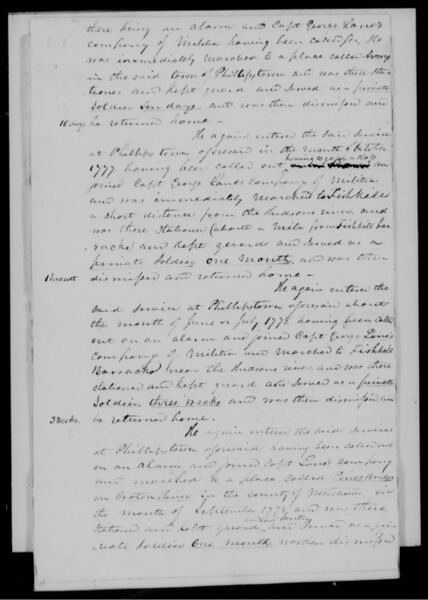 there being an alarm and Capt George Lane's
company of Militia having been called for, He
was immediately marched to a place called
in the said town of Phillipstown and was there sta
tioned and kept guard and served as a private
Soldier Ten days and was then dismissed and
10 days he returned home —
He again entered the said Service
at Phillipstown aforesaid in the month of October
1777 having been called out having to go for a class
joined Capt George Lane's company of Militia
and was immediately marched to Fishkill
a short distance from the Hudsons river and
was there stationed (about a mile from Fishkill bar
racks) and kept guard and served as a
private Soldier One Month, and was then
1 Month dismissed and returned home —
He again entered the
said service at Phillipstown aforesaid about
the month of June or July, 1778, having been called
out on an alarm and joined Capt George Lane's
Company of Militia and marched to Fishkill
Barracks near the Hudsons river and was there
stationed and kept guard and served as a private
Soldier, three weeks and was then dismissed and
3 Weeks. he returned home.
He again entered the said service
at Phillipstown aforesaid having been called out
on an alarm and joined Capt Lane's company
and marched to a place called Pines Bridge
on Croton River in the county of Westchester in
the month of September 1778, and was there
stationed and kept guard, and served as a pri
vate Soldier One month, was then dismissed